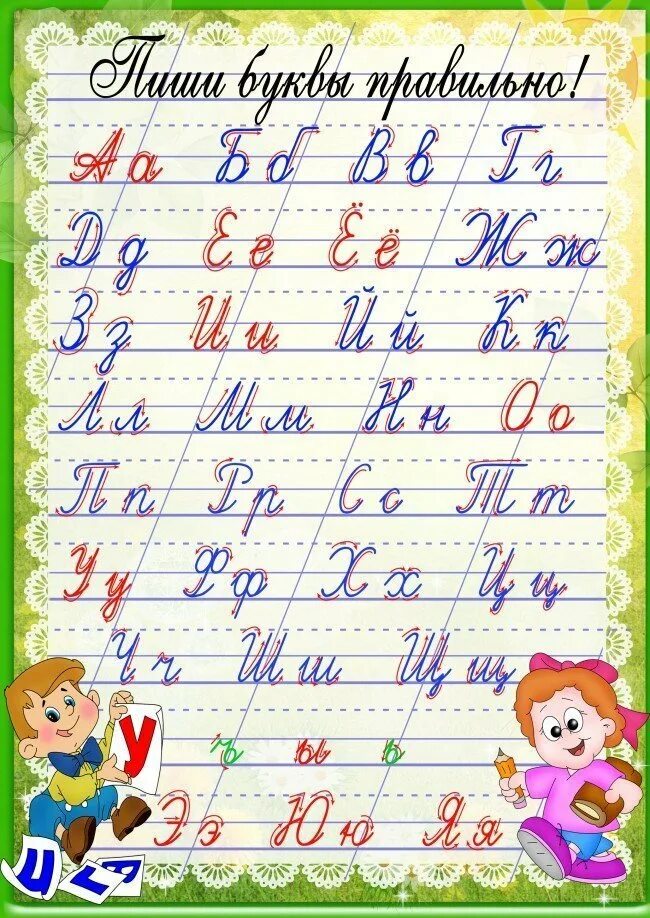 Пиши буквы правильно!
Аа Бб Вв Гг
Дд Ее Ёё Жж
Зз Ии Йй Кк
Лл Мм Нн Оо
Пп Рр Сс Тт
Уу Фф Хх Цц
Чч Шш Щщ
У
ъ ы ь
Ээ Юю Яя